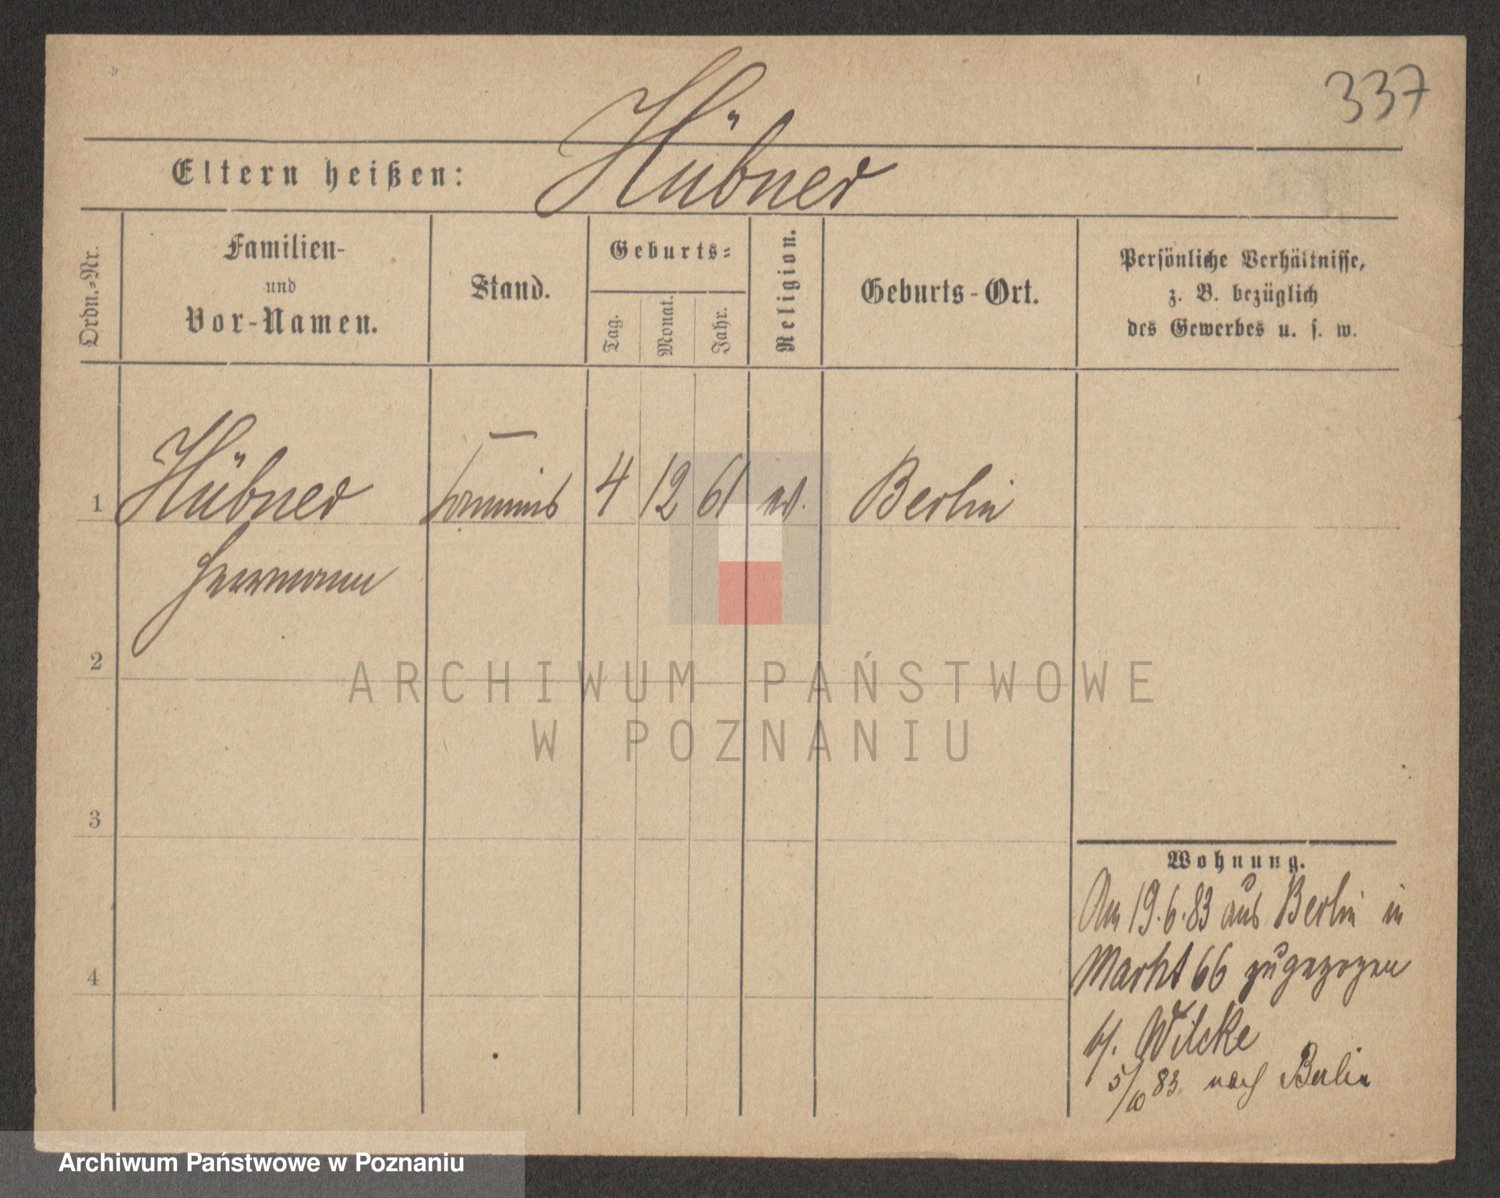 337
Hübner
Eltern heißen:
Ordn.-Nr.
Familien-
und
Vor-Namen.
Stand.
Geburts-
Tag.
Monat.
Jahr.
Religion.
Geburts-Ort.
Persönliche Verhältnisse,
z. B. bezüglich
des Gewerbes u. s. w.
1 Hübner Commis 4 12 61 ev. Berlin
Herrmann
2
3
4
ARCHIWUM PAŃSTWOWE
W POZNANIU
Wohnung.
Am 19.6.83 aus Berlin in
Markt 66 zugezogen
b/. Wilcke
5/10 83. nach Berlin
Archiwum Państwowe w Poznaniu